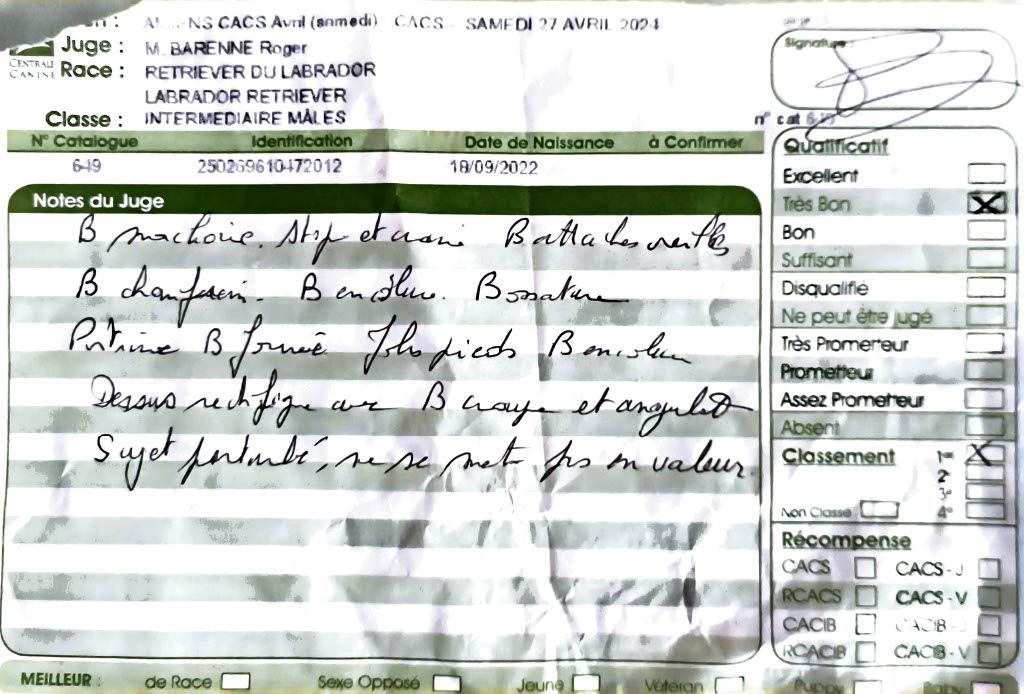 CACS Avril (samedi) CACS - SAMEDI 27 AVRIL 2024
Juge : M. BARENNE Roger
CENTRALE CANINE
Race : RETRIEVER DU LABRADOR
LABRADOR RETRIEVER
Classe : INTERMEDIAIRE MÂLES
N° Catalogue Identification Date de Naissance à Confirmer
649 250269610472012 18/09/2022
Notes du Juge
B machoire. Stop et crane B attaches oreilles
B chanfrein. B encolure. B ossature
Poitrine B formée Jolis pieds B encolure
Dessus rectiligne avec B croupe et angulat
Sujet perturbé, ne se met pas en valeur.
Signature :
n° cat 649
Qualificatif
Excellent
Très Bon
Bon
Suffisant
Disqualifié
Ne peut être jugé
Très Prometteur
Prometteur
Assez Prometteur
Absent
Classement 1er
2e
3e
Non Classé 4e
Récompense
CACS CACS - J
RCACS CACS - V
CACIB CACIB - J
RCACIB CACIB - V
MEILLEUR : de Race Sexe Opposé Jeune Vétéran Puppy Baby